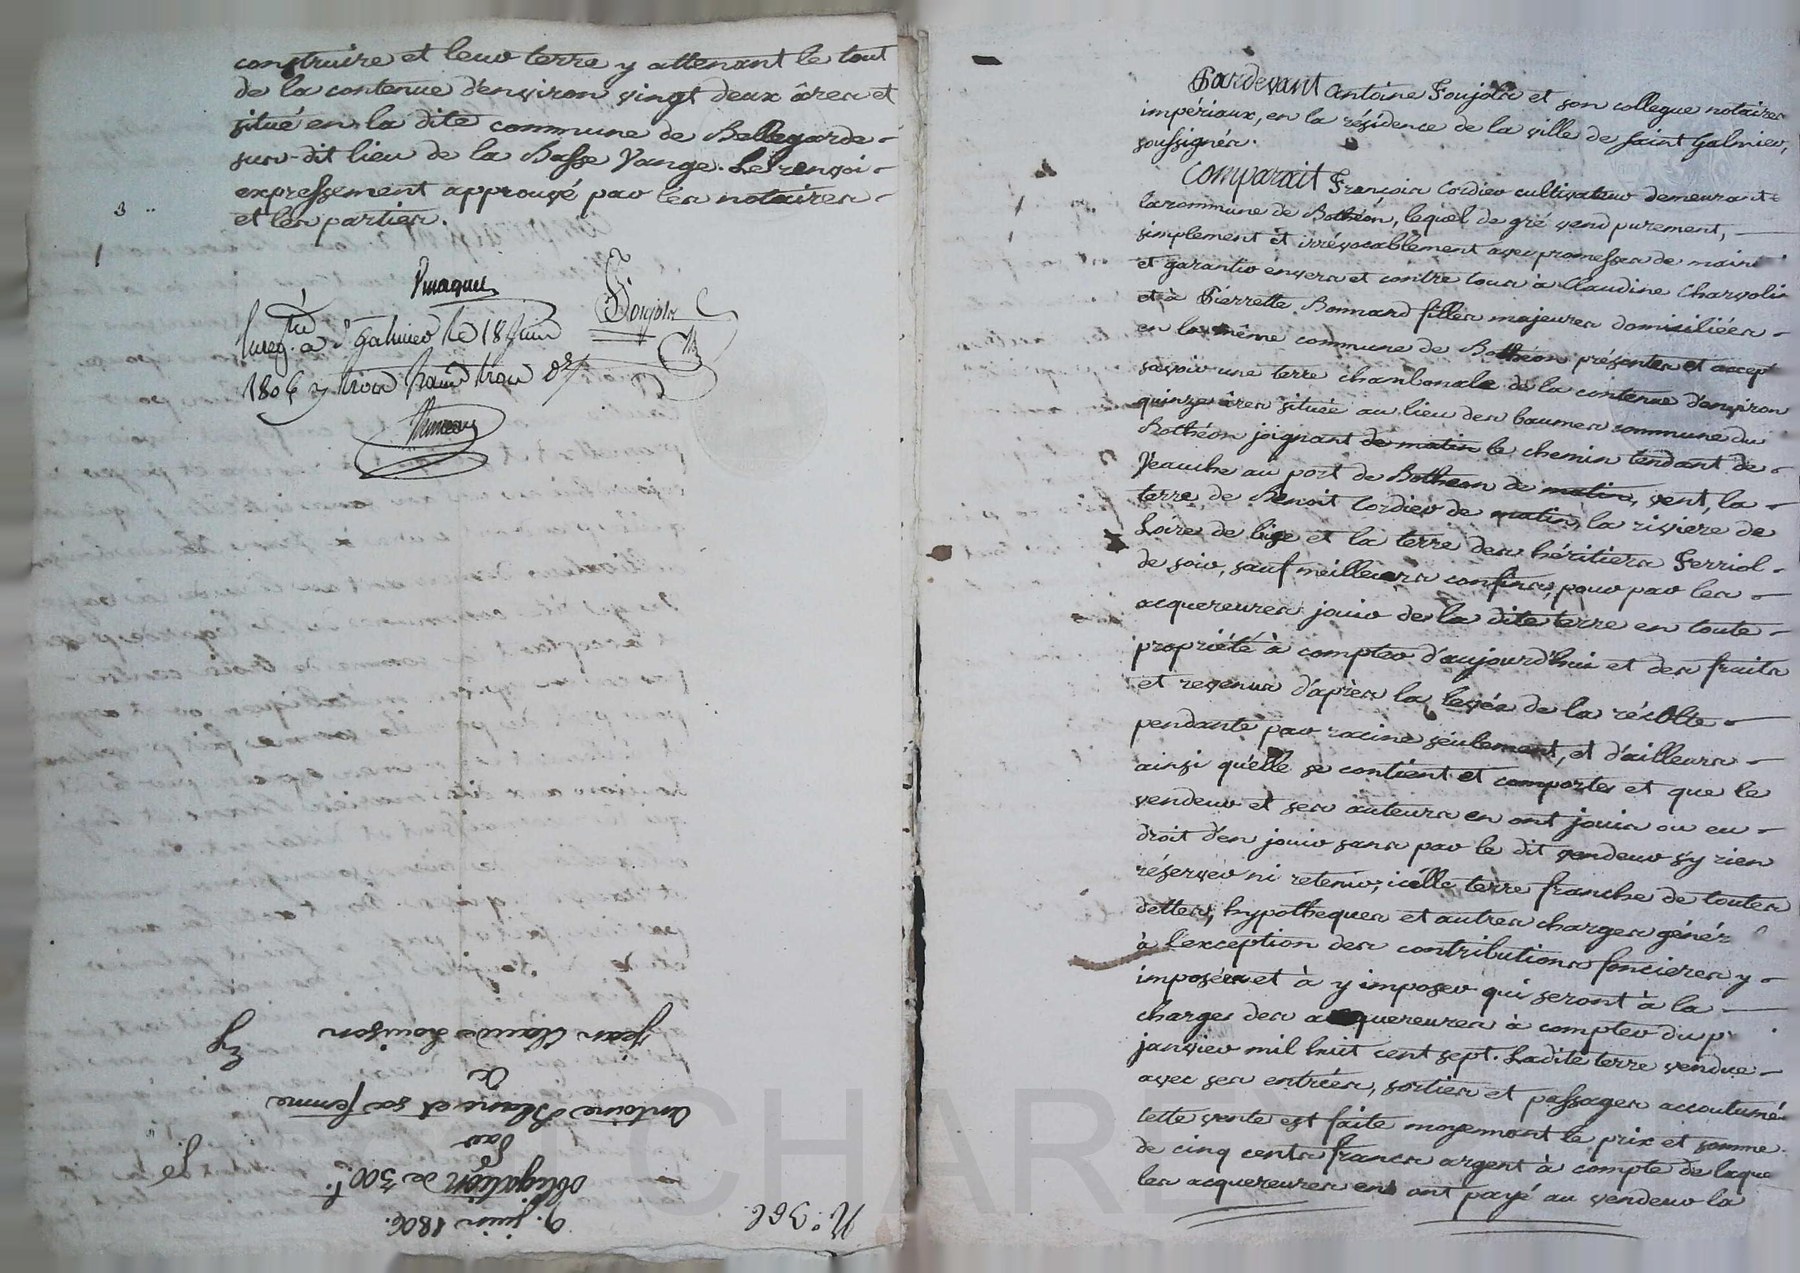 construire et leur terre y attenant le tout
de la contenue d'environ vingt deux âres et
situé en la dite commune de Bellegarde
sur-dit lieu de la Basse Vange. Le renvoi
expressement approuvé par les notaires
et les parties.
Foujols
Enreg. à St galmier le 18 Juin
1806 trois francs trois
Jean Claude Louison
à
Antoine Blanc et sa femme
Par
Obligation de 300 f.
9. juin 1806.
N.° 366.
Pardevant Antoine Foujols et son collegue notaires
impériaux, en la résidence de la ville de Saint Galmier,
soussignés.
Comparait François Cordier cultivateur demeurant
la commune de Bothéon, lequel de gré vend purement,
simplement et irrévocablement avec promesses de maint
et garantir envers et contre tous à Claudine Charvolin
et à Pierrette Bonnard filles majeures domiciliées
en la même commune de Bothéon présentes et accept
savoir une terre chambonale de la contenue d'environ
quinze âres située au lieu des baumes commune du
Bothéon joignant de matin le chemin tendant de
Veauche au port de Botheon de matin, vent, la
terre de Benoit Cordier de matin, la riviere de
Loire de bise et la terre des héritiers Ferriol
de soir, sauf meilleurs confins, pour par les
acquereures jouir de la dite terre en toute
propriété à compter d'aujourd'hui et des fruits
et revenus d'après la levée de la récolte
pendante par racine seulement, et d'ailleurs
ainsi qu'elle se contient et comporte et que le
vendeur et ses auteurs en ont jouis ou eu
droit d'en jouir sans par le dit vendeur s'y rien
réserver ni retenir; icelle terre franche de toutes
dettes, hypotheques et autres charges génér
à l'exception des contributions foncieres y
imposées et à y imposer qui seront à la
charge des acquereures à compter du pr
janvier mil huit cent sept. Ladite terre vendue
avec ses entrées, sorties et passages accoutumé
Cette vente est faite moyennant le prix et somme
de cinq cents francs argent à compte de laque
les acquereures en ont payé au vendeur la